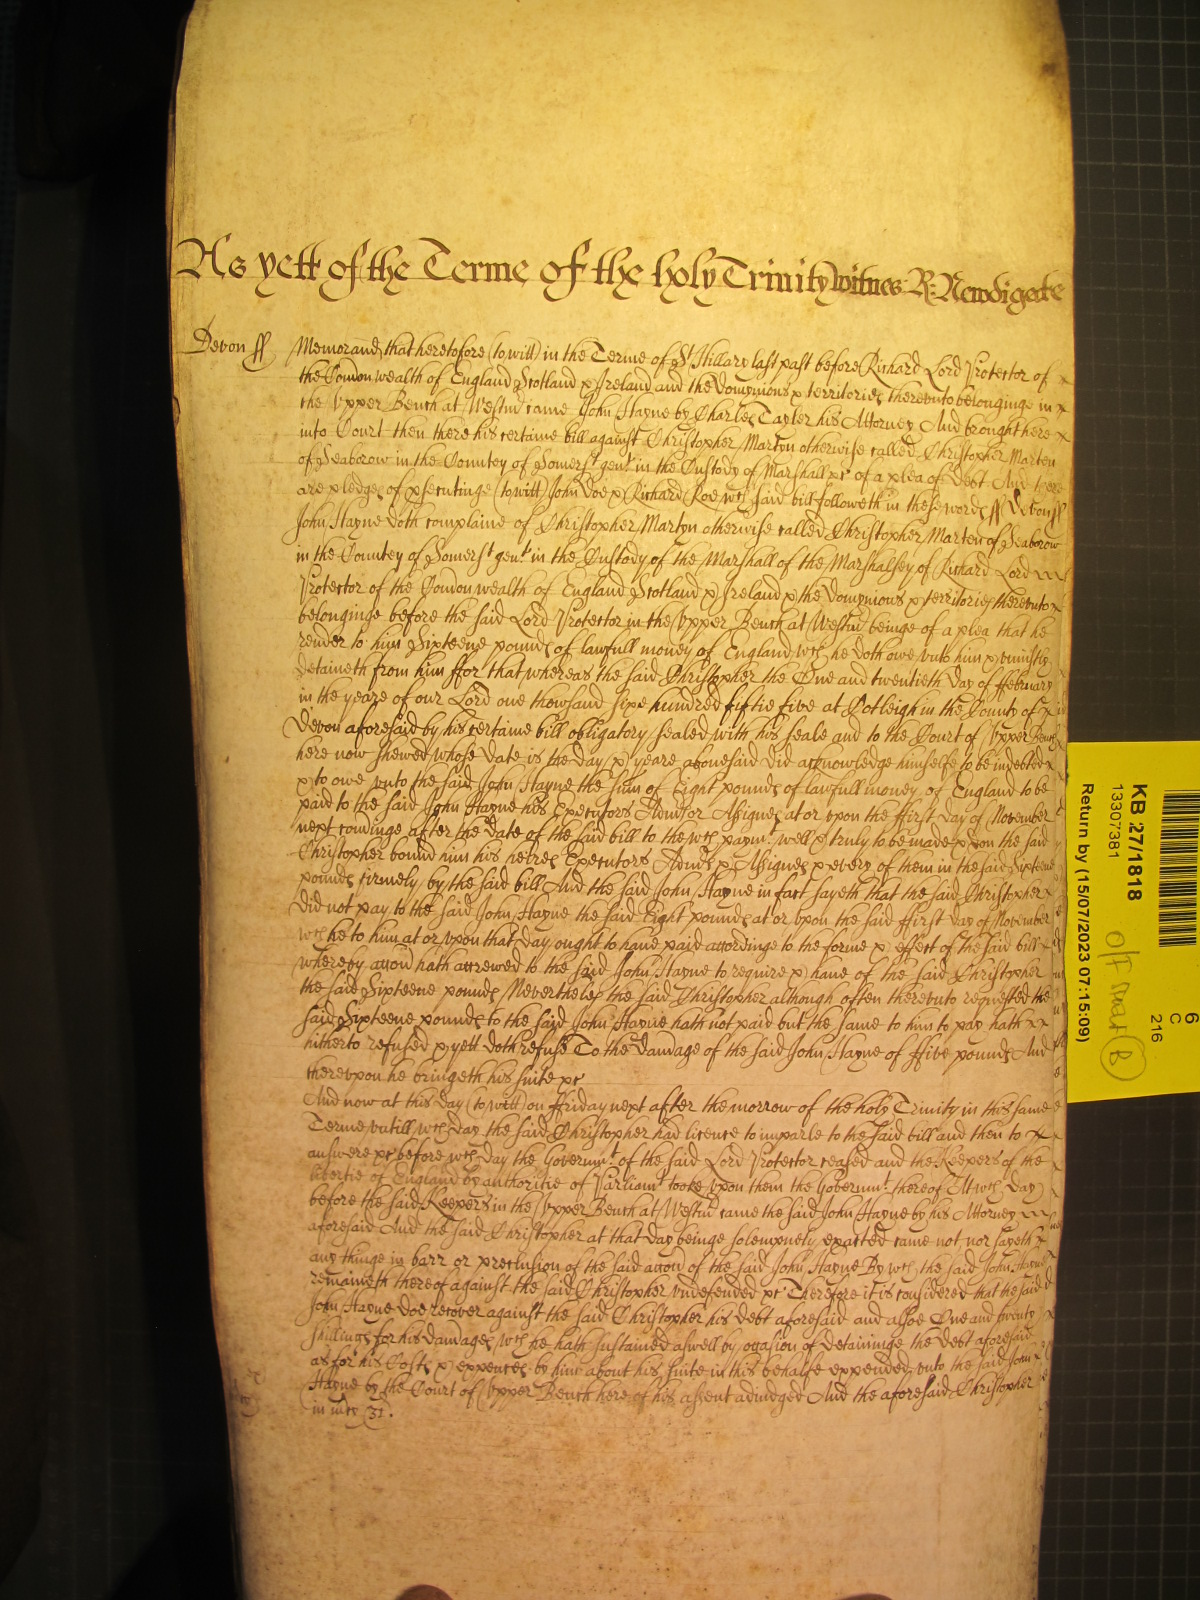 As yett of the Terme of the holy Trinity witnes R: Newdigate
Devon ss Memorand that heretofore (to witt) in the Terme of St Hillary last past before Richard Lord Protector of
the Comonwealth of England Scotland & Ireland and the Dominions & territories thereunto belonginge in x
the Upper Bench at Westm came John Hayne by Charles Tayler his Attorney And brought here x
into Court then there his certaine bill against Christopher Martyn otherwise called Christopher Marten
of Seaborow in the Countey of Somerst gent in the Custody of Marshall &c of a plea of debt And there
are pledges of psecutinge (to witt) John Doe & Richard Roe wch said bill followeth in these words ss Devon ss
John Hayne doth complaine of Christopher Martyn otherwise called Christopher Marten of Seaborow
in the Countey of Somerst gent in the Custody of the Marshall of the Marshalsey of Richard Lord
Protector of the Comonwealth of England Scotland & Ireland & the Dominions & territories thereunto x
belonginge before the said Lord Protector in the Upper Bench at Westm beinge of a plea that he
render to him Sixteene pounds of lawfull money of England wch he doth owe unto him & uniustly
detaineth from him ffor that whereas the said Christopher the One and twentieth day of ffebruary
in the yeare of our Lord one thousand sixe hundred fiftie five at Cotleigh in the County of x
Devon aforesaid by his certaine bill obligatory sealed with his seale and to the Court of Upper Bench
here now shewed whose date is the day & yeare abovesaid did acknowledge himselfe to be indebted x
& to owe unto the said John Hayne the sum of Eight pounds of lawfull money of England to be
paid to the said John Hayne his Executors Admsor Assignes at or upon the ffirst day of November
next cominge after the date of the said bill to the wch paymt well & truly to be made & don the said
Christopher bound him his heires Executors Adms & Assignes & every of them in the said Sixteene
pounds firmely by the said bill And the said John Hayne in fact sayeth that the said Christopher x
did not pay to the said John Hayne the said Eight pounds at or upon the said ffirst day of November
wch he to him at or upon that day ought to have paid accordinge to the forme & effect of the said bill
whereby accon hath accrewed to the said John Hayne to require & have of the said Christopher
the said Sixteene pounds Neverthelesse the said Christopher although often thereunto requested the
said Sixteene pounds to the said John Hayne hath not paid but the same to him to pay hath x x
hitherto refused & yett doth refuse To the damage of the said John Hayne of ffive pounds And
thereupon he bringeth his suite &c
And now at this day (to witt) on ffriday next after the morrow of the holy Trinity in this same
Terme untill wch day the said Christopher had licence to imparle to the said bill and then to x
answere &c before wch day the Governmt of the said Lord Protector ceased and the Keepers of the
libertie of England by authoritie of Parliamt tooke upon them the Governmt thereof Att wch day
before the said Keepers in the Upper Bench at Westm came the said John Hayne by his Attorney
aforesaid And the said Christopher at that day beinge solempnely exacted came not nor sayeth x
any thinge in barr or preclusion of the said accon of the said John Hayne By wch the said John Hayne
remaineth thereof against the said Christopher undefended &c Therefore it is considered that the said
John Hayne doe recover against the said Christopher his debt aforesaid and alsoe One and twenty
shillings for his damages wch he hath sustained aswell by occasion of detaininge the debt aforesaid
as for his Costs & expences by him about his suite in this behalfe expended unto the said John x
Hayne by the Court of Upper Bench here of his assent adiudged And the aforesaid Christopher
in mcy &c.
KB 27/1818
13307381
Return by (15/07/2023 07:15:09)
6
C
216
B